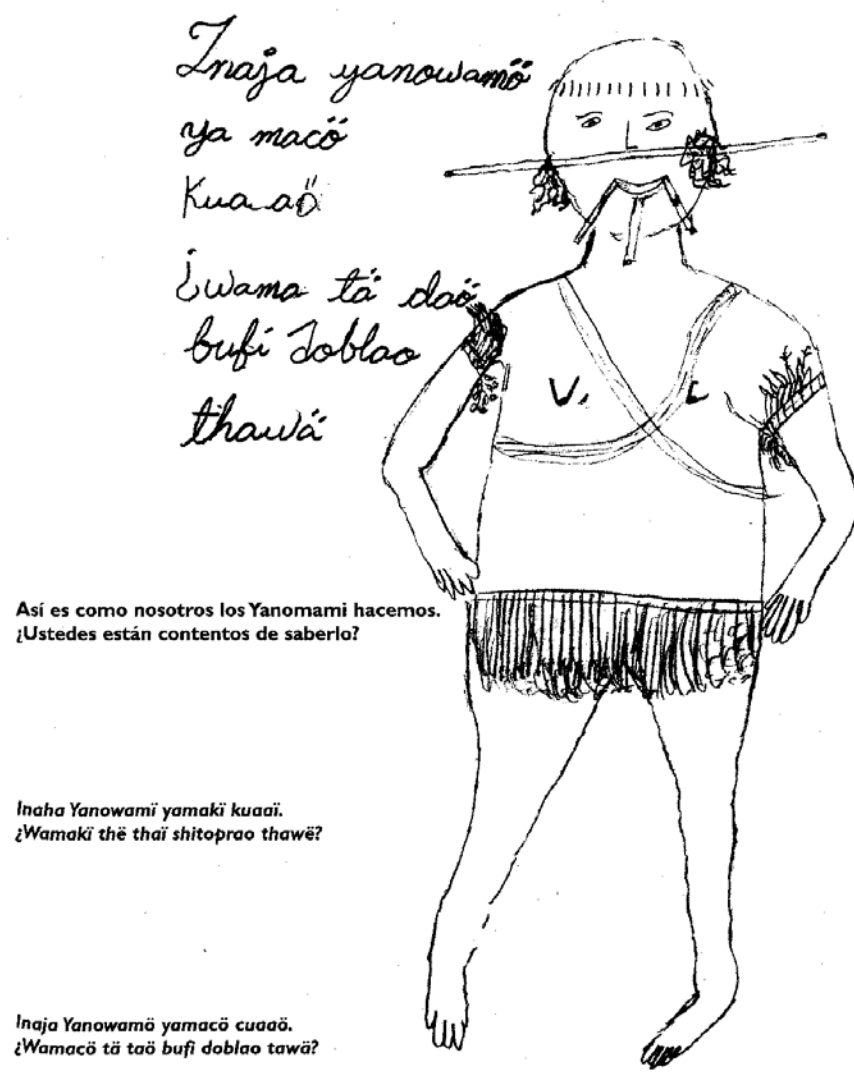 Inaja yanowamö
ya macö
Kuaaö
¿wama tä daö
bufi doblao
thawä
Así es como nosotros los Yanomami hacemos.
¿Ustedes están contentos de saberlo?
Inaha Yanowamï yamakï kuaaï.
¿Wamakï thë thaï shitoprao thawë?
Inaja Yanowamö yamacö cuaaö.
¿Wamacö tä taö bufi doblao tawä?